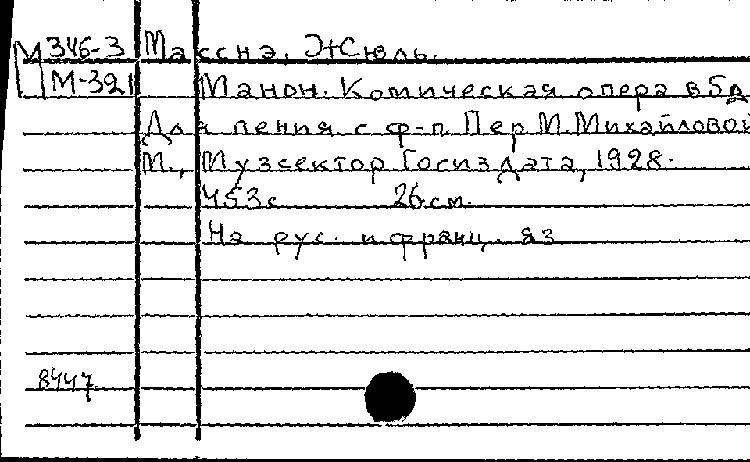 М 346-3 Массне, Жюль.
М-321 Манон. Комическая опера в 5 д
Для пения с ф-п. Пер М. Михайловой
М., Музсектор Госиздата, 1928.
453 с 26 см.
На рус. и франц. яз
8447